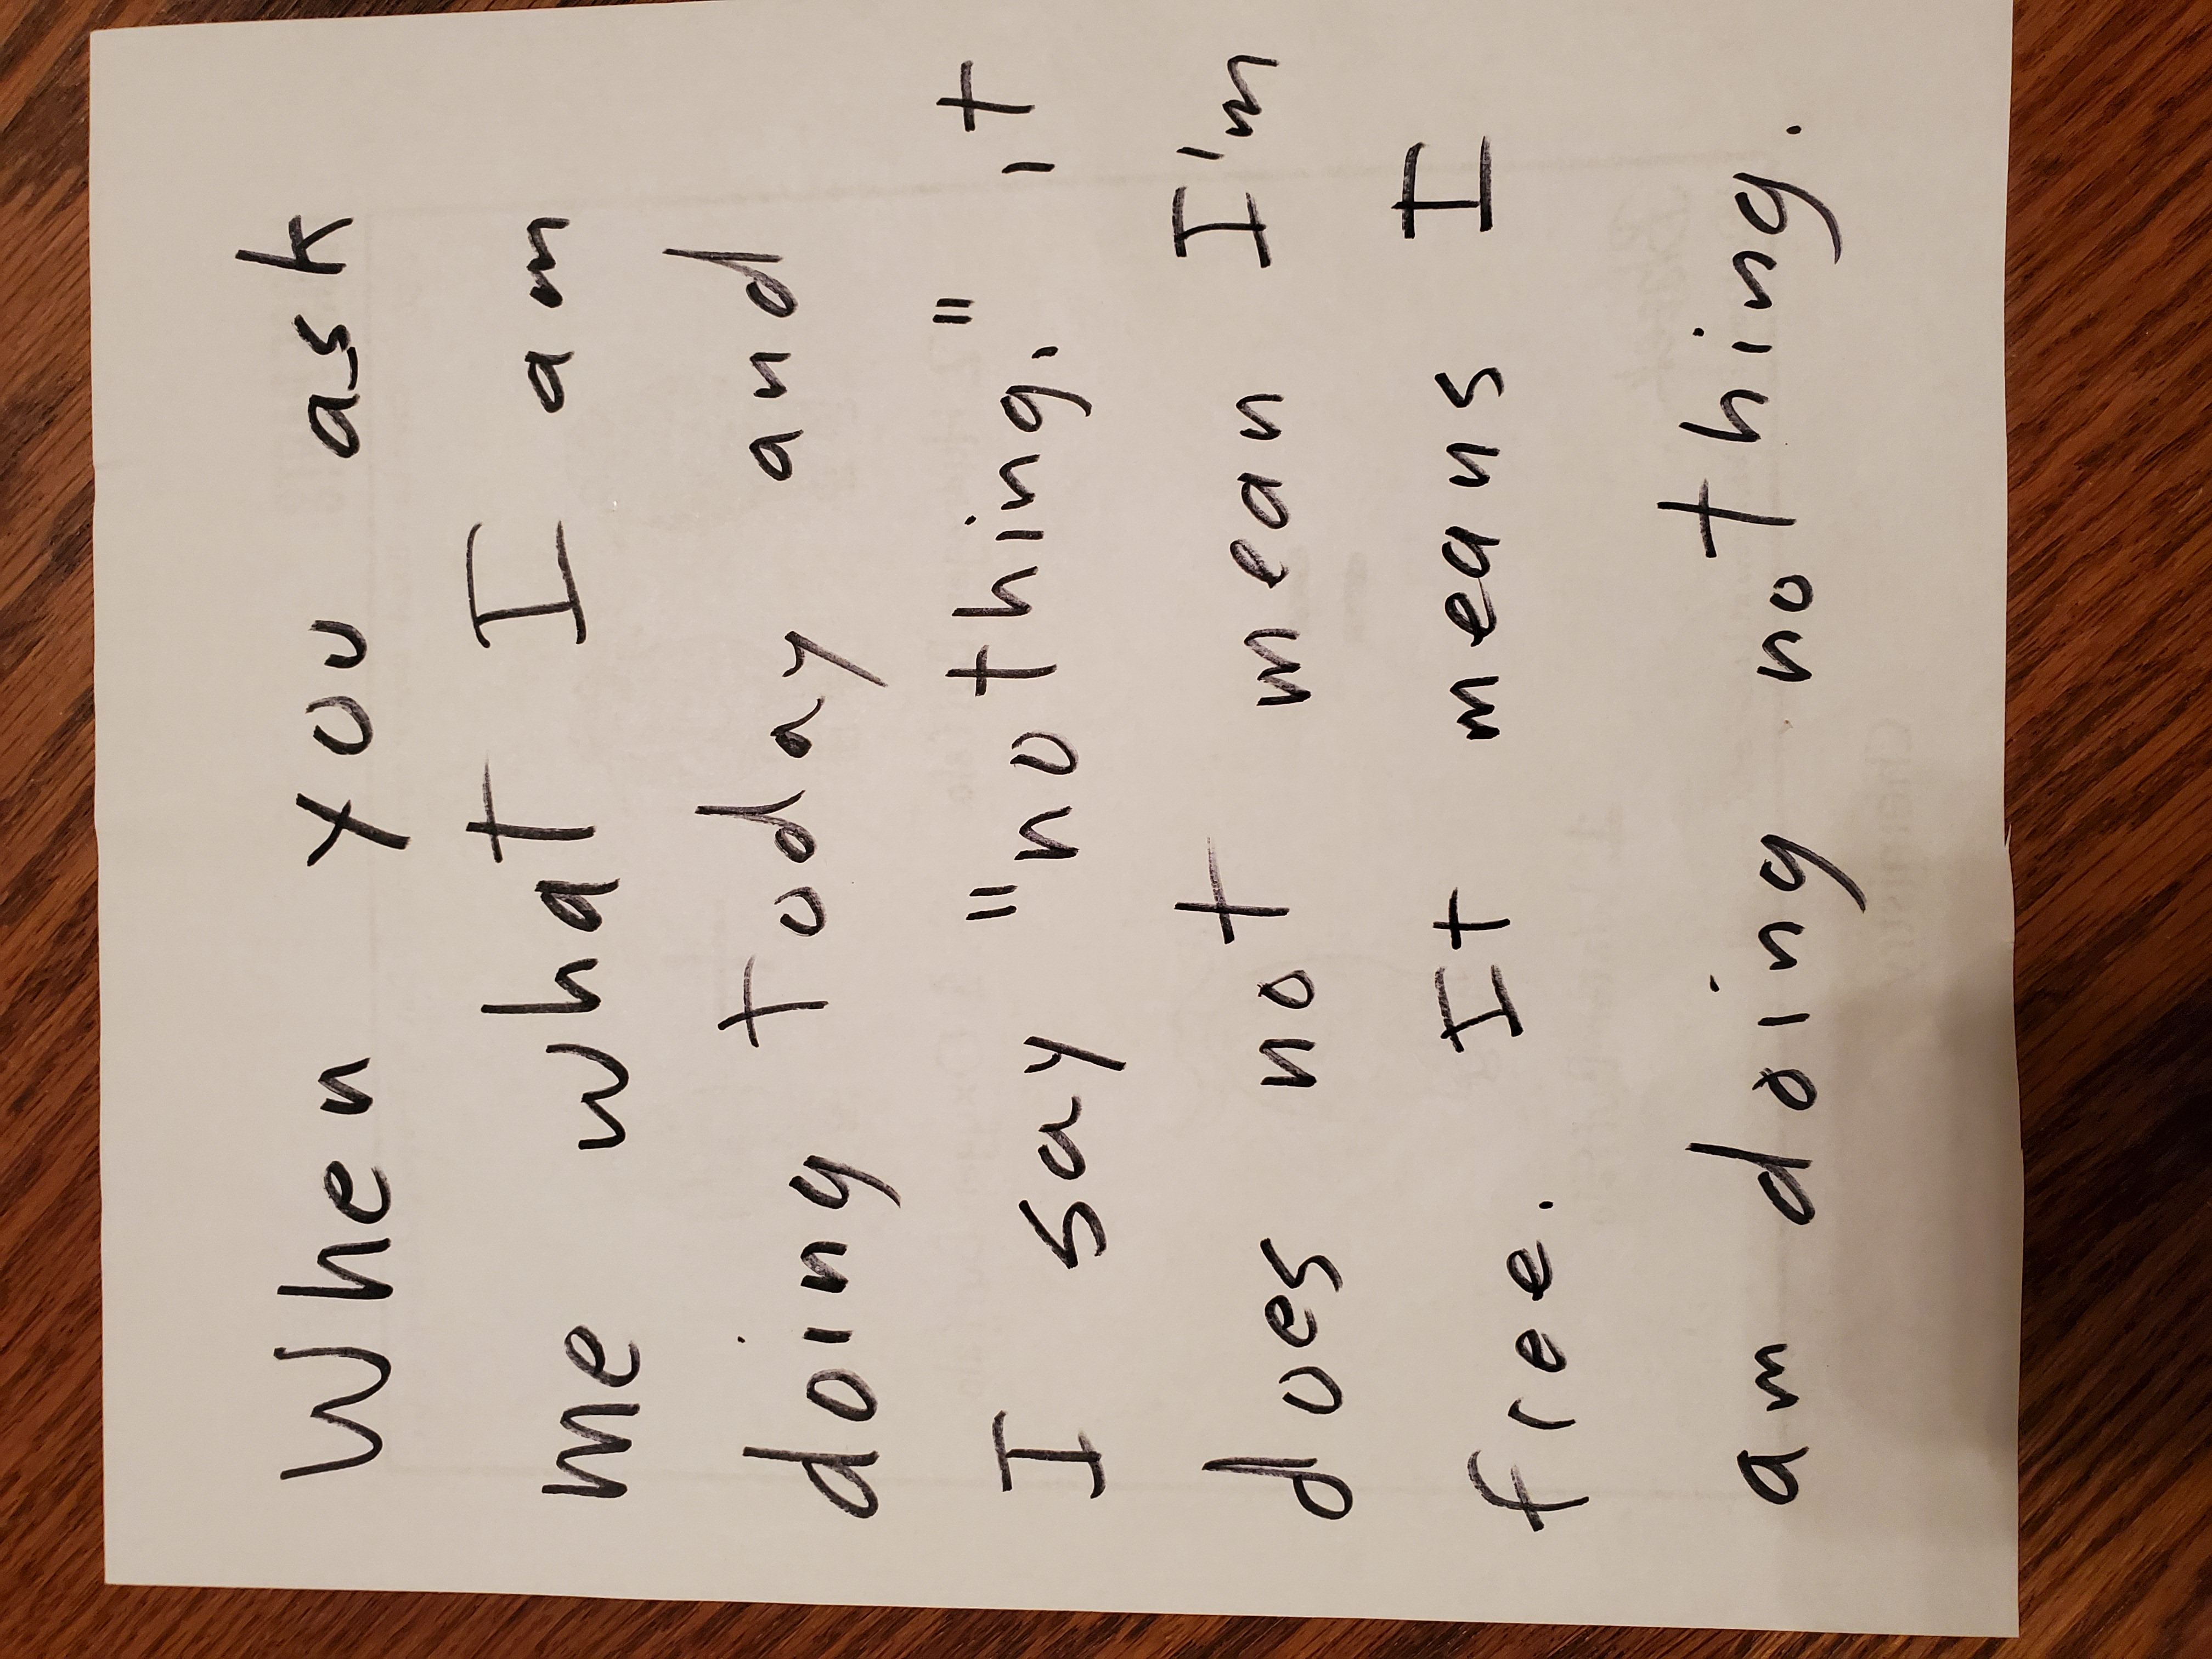 When you ask
me what I am
doing today and
I say "nothing," it
does not mean I'm
free. It means I
am doing nothing.